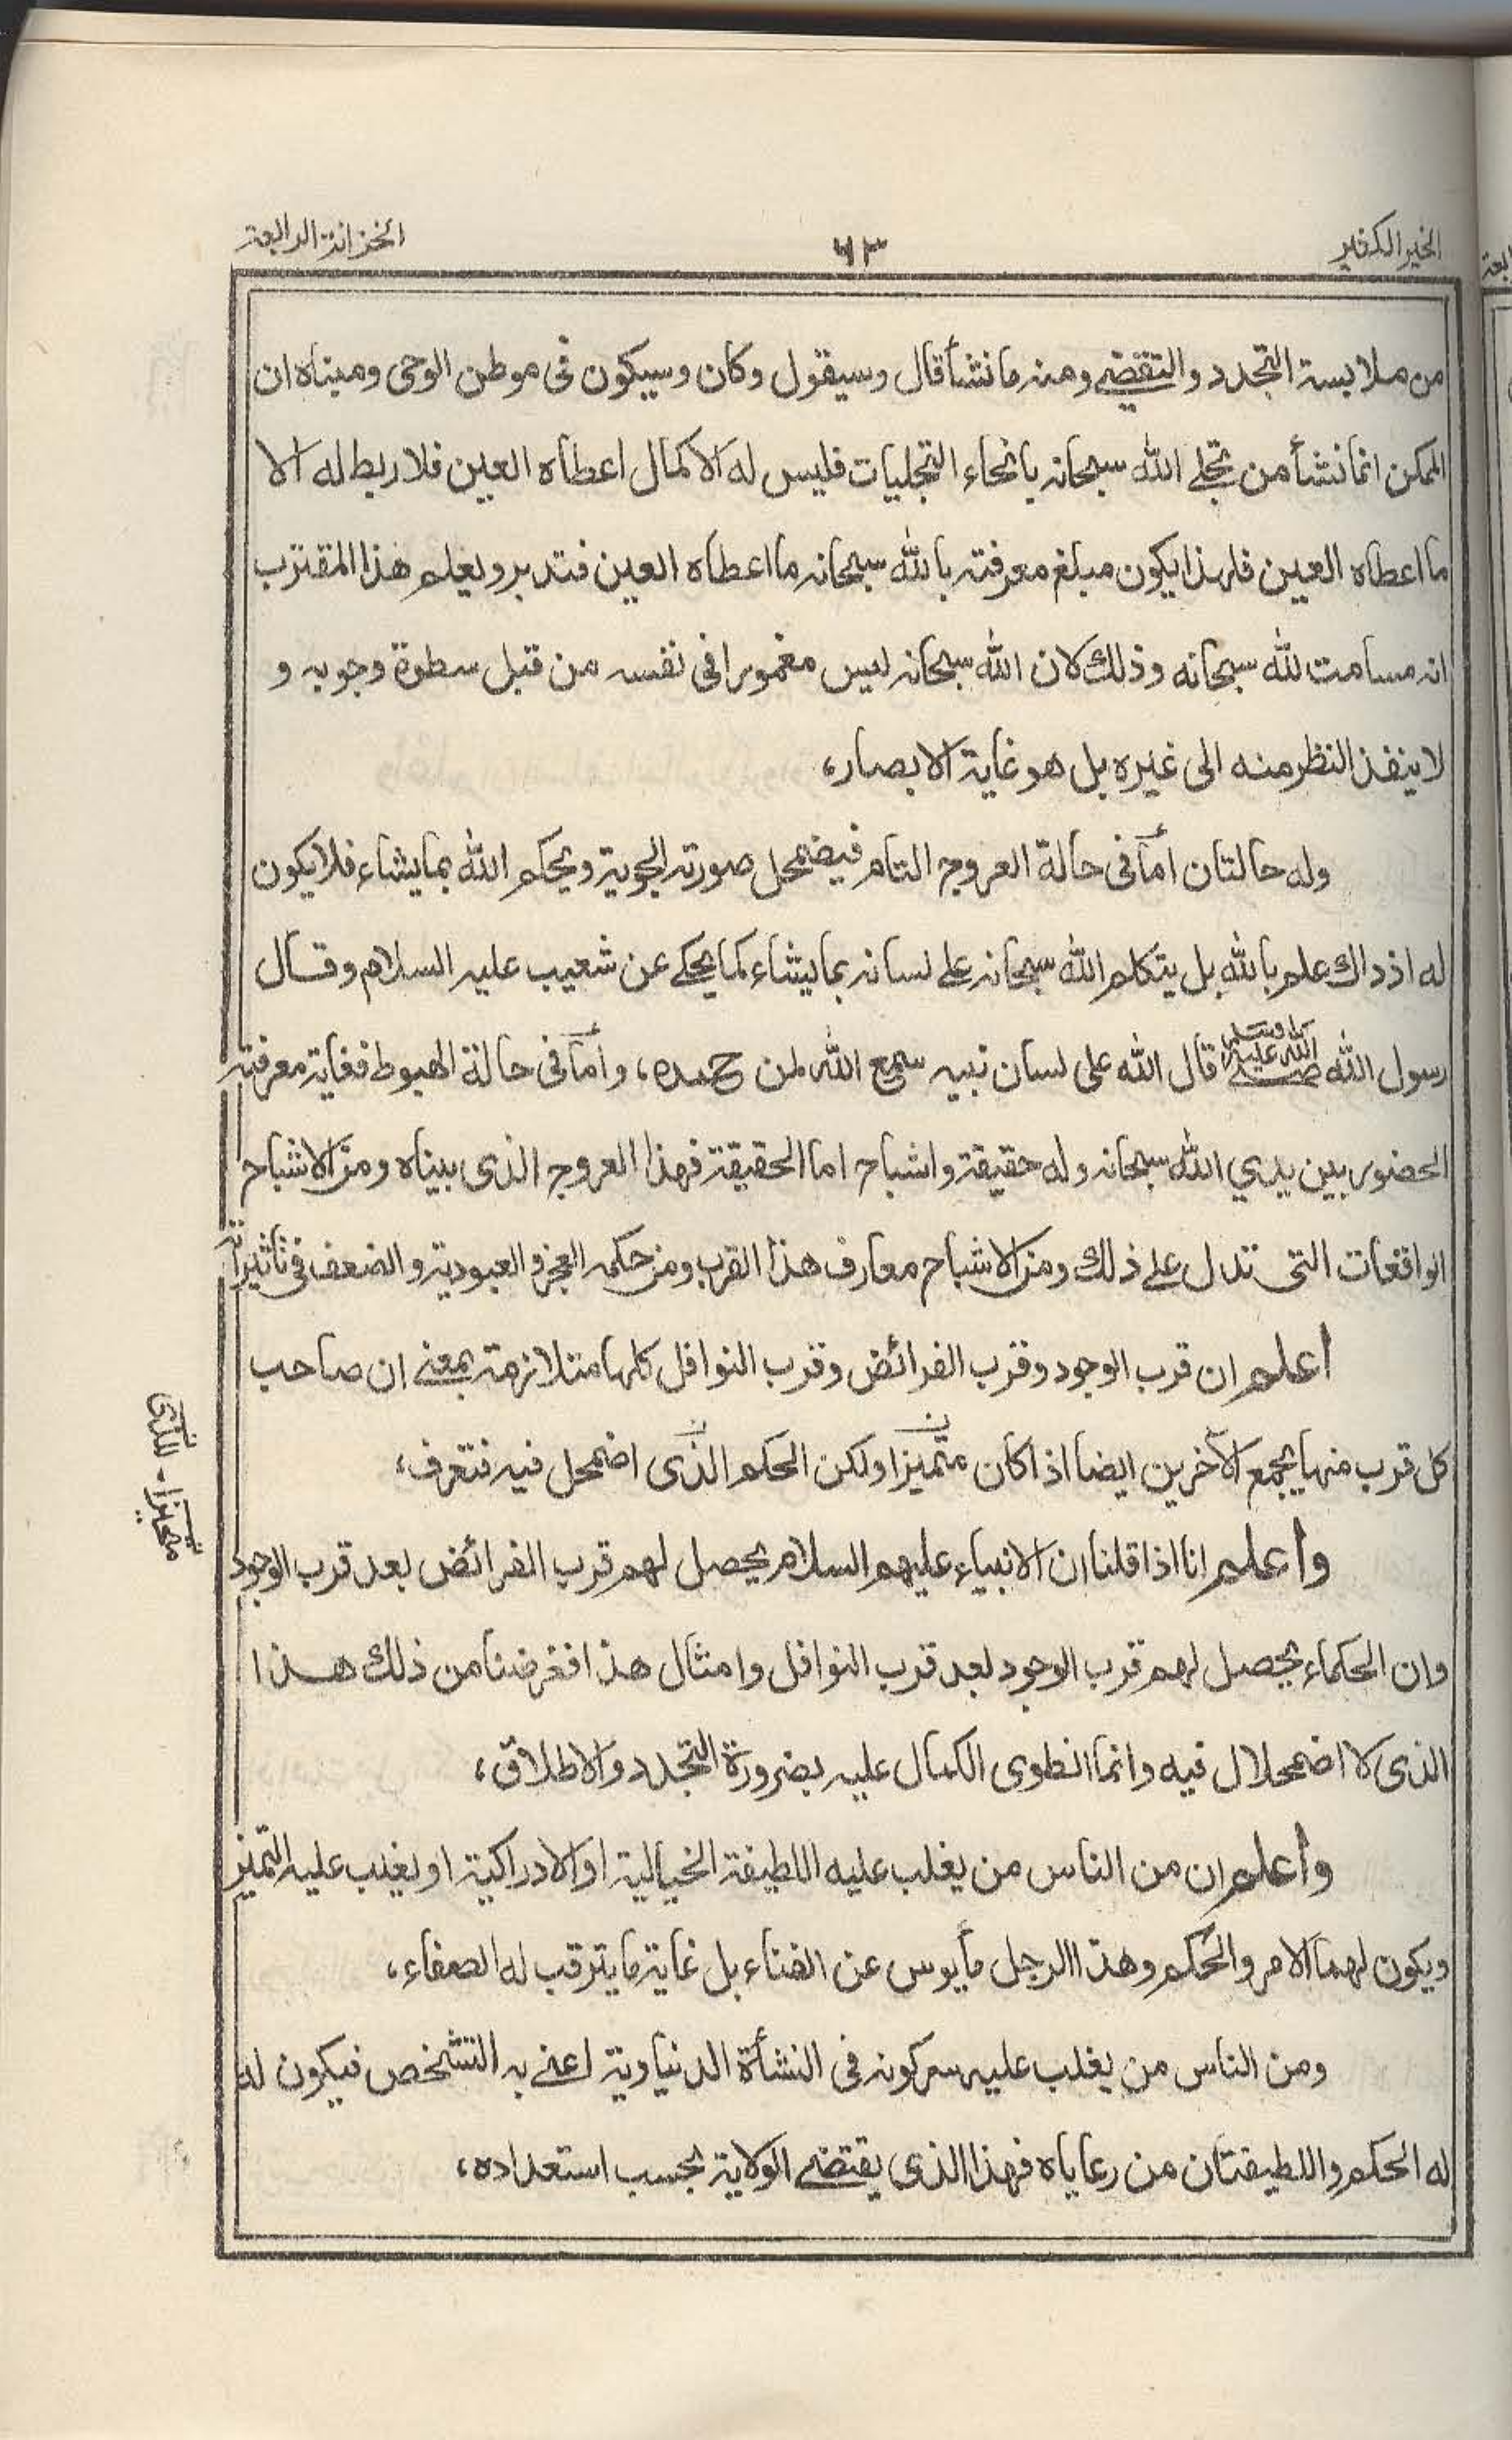 الخير الكثير
٦٣
الخزانة الرابعة
من ملابسة التجدد والتقضي ومنه ما نشأ قال وسيقول وكان وسيكون فى موطن الوحى ومبناه ان
الممكن انما نشأ من تجلے الله سبحانه بانحاء التجليات فليس له الا كمال اعطاه العين فلا ربط له الا
ما اعطاه العين فلهذا يكون مبلغ معرفته بالله سبحانه ما اعطاه العين فتدبر ويعلم هذا المقترب
انه مسامت لله سبحانه وذلك لان الله سبحانه ليس مغمورا فى نفسه من قبل سطوة وجوبه و
لا ينفذ النظر منه الى غيره بل هو غاية الابصار،
وله حالتان أما فى حالة العروج التام فيضمحل صورته الجوية ويحكم الله بما يشاء فلا يكون
له اذ ذاك علم بالله بل يتكلم الله سبحانه على لسانه بما يشاء كما يحكے عن شعيب عليه السلام وقال
رسول الله صلى الله عليه وسلم قال الله على لسان نبيه سمع الله لمن حمده، وأما فى حالة الهبوط فغاية معرفته
الحضور بين يدي الله سبحانه وله حقيقة واشباح اما الحقيقة فهذا العروج الذى بيناه ومن الاشباح
الواقعات التى تدل على ذلك ومن الاشباح معارف هذا القرب ومن حكمه العجز والعبودية والضعف فى تاثيراته
اعلم ان قرب الوجود وقرب الفرائض وقرب النوافل كلها متلازمة بمعنے ان صاحب
كل قرب منها يجمع الآخرين ايضا اذا كان متميزا ولكن الحكم الذى اضمحل فيه فتعرف،
واعلم انا اذا قلنا ان الانبياء عليهم السلام يحصل لهم قرب الفرائض بعد قرب الوجود
وان الحكماء يحصل لهم قرب الوجود بعد قرب النوافل وامثال هذا فغرضنا من ذلك هذا
الذى لا اضمحلال فيه وانما انطوى الكمال عليه بضرورة التجدد والاطلاق،
واعلم ان من الناس من يغلب عليه اللطيفة الخيالية او الادراكية او يغلب عليه التميز
ويكون لهما الامر والحكم وهذا الرجل مأيوس عن الفناء بل غاية ما يترقب له الصفاء،
ومن الناس من يغلب عليه سر كونه فى النشأة الدنياوية اعنے به التشخص فيكون له
له الحكم واللطيفتان من رعاياه فهذا الذى يقتضے الولاية بحسب استعداده،
للذى